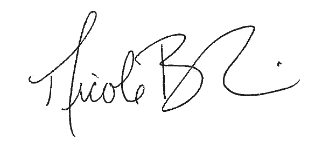 Nicole B